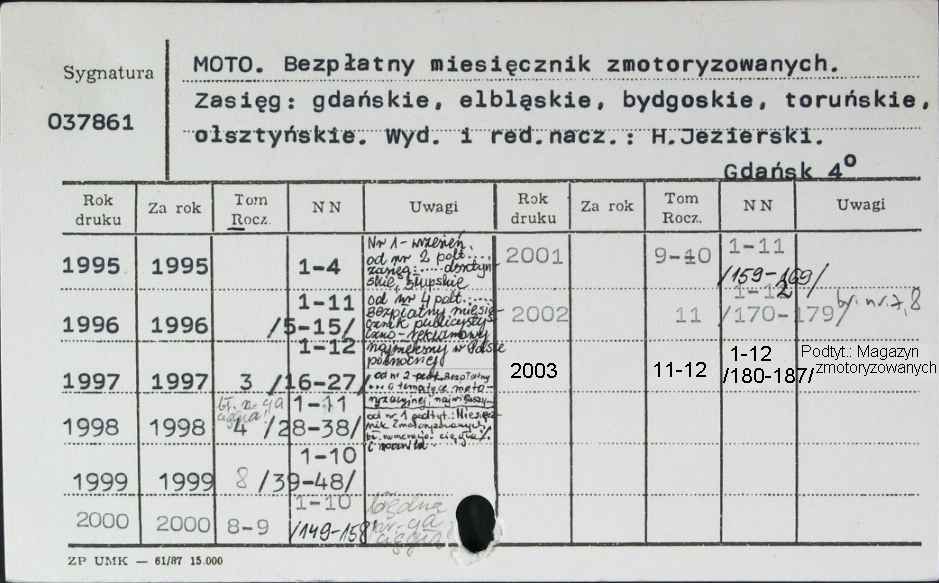 Sygnatura
037861
MOTO. Bezpłatny miesięcznik zmotoryzowanych.
Zasięg: gdańskie, elbląskie, bydgoskie, toruńskie,
olsztyńskie. Wyd. i red.nacz.: H.Jezierski.
Gdańsk 4°
Rok druku Za rok Tom Rocz. NN Uwagi Rok druku Za rok Tom Rocz. NN Uwagi
1995 1995 1-4
Nr 1 - wrzesień.
od nr 2 podt....
zasięg:
skie, słupskie
1996 1996 1-11
/5-15/
od nr 4 podt.....
Bezpłatny miesię-
cznik publicysty
czno-reklamowy
1997 1997 3 1-12
/16-27/
największy w Polsce
północnej
od nr 2 podt. Bezpłatny
1998 1998 4 1-11
/28-38/
bł. n-cja
ciągła!
od nr 1 podtyt.: Miesięcz-
nik Zmotoryzowanych
1999 1999 8 1-10
/39-48/
2000 2000 8-9 1-10
/149-158/
błędna
nr-cja
ciągła!
2001 9-10 1-11
/159-169/
2002 11 1-12
/170-179/
br. nr. 7, 8
2003 11-12 1-12
/180-187/
Podtyt.: Magazyn
zmotoryzowanych
ZP UMK — 61/87 15.000